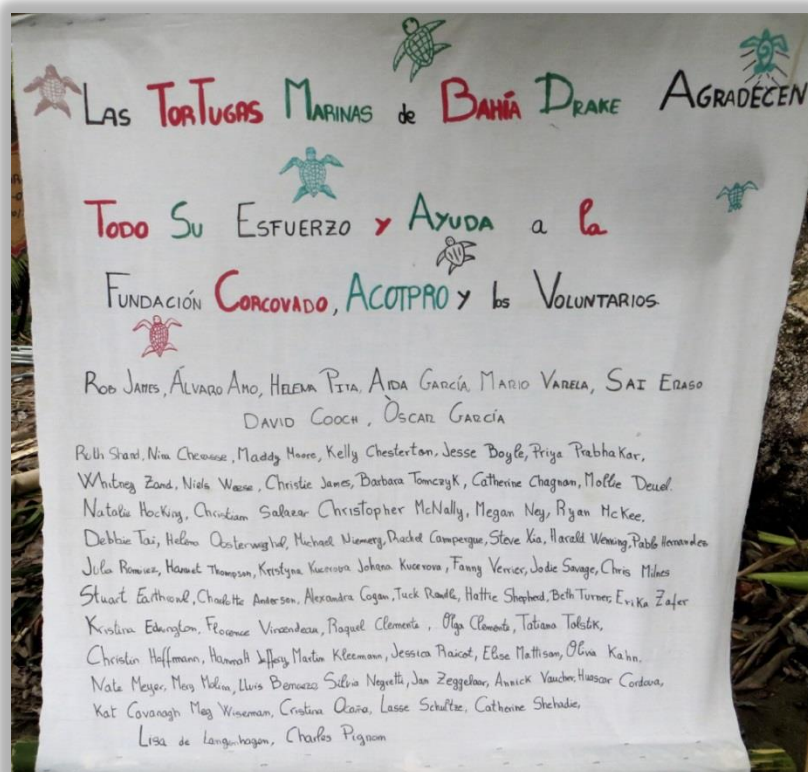 Las Tortugas Marinas de Bahía Drake Agradecen
Todo Su Esfuerzo y Ayuda a la
Fundación Corcovado, Acotpro y los Voluntarios
Rob James, Álvaro Amo, Helena Pita, Aida García, Mario Varela, Sai Eraso
David Cooch, Òscar García
Ruth Shand, Nina, Maddy Moore, Kelly Chesterton, Jesse Boyle, Priya Prabhakar,
Whitney Zand, Niels, Christie James, Barbara Tomczyk, Catherine Chagnan, Mollie Deuel.
Natalie Hocking, Christiam Salazar Christopher McNally, Megan Ney, Ryan McKee,
Debbie Tai, Helena, Michael Niemerg, Rachel Campergue, Steve Xia, Harald Werning, Pablo Hernandez
Julia Ramirez, Harriet Thompson, Kristyna Kucerova Johana Kucerova, Fanny Verrier, Jodie Savage, Chris Milnes
Stuart, Charlotte Anderson, Alexandra Cogan, Tuck, Hattie Shepherd, Beth Turner, Erika Zafer
Kristina Edrington, Florence, Raquel Clemente, Olga Clemente, Tatiana Tolstik,
Christin Hoffmann, Hannah Jeffery, Martin Kleemann, Jessica Raicot, Elise Mattison, Olivia Kahn,
Nate Meyer, Mery Molina, Lluis, Silvia Negretti, Jan Zeggelaar, Annick Vaucher, Huascar Cordova,
Kat Cavanagh Meg Wiseman, Cristina Ocaña, Lasse Schultze, Catherine Shehadie,
Lisa de Langenhagen, Charles Pignom